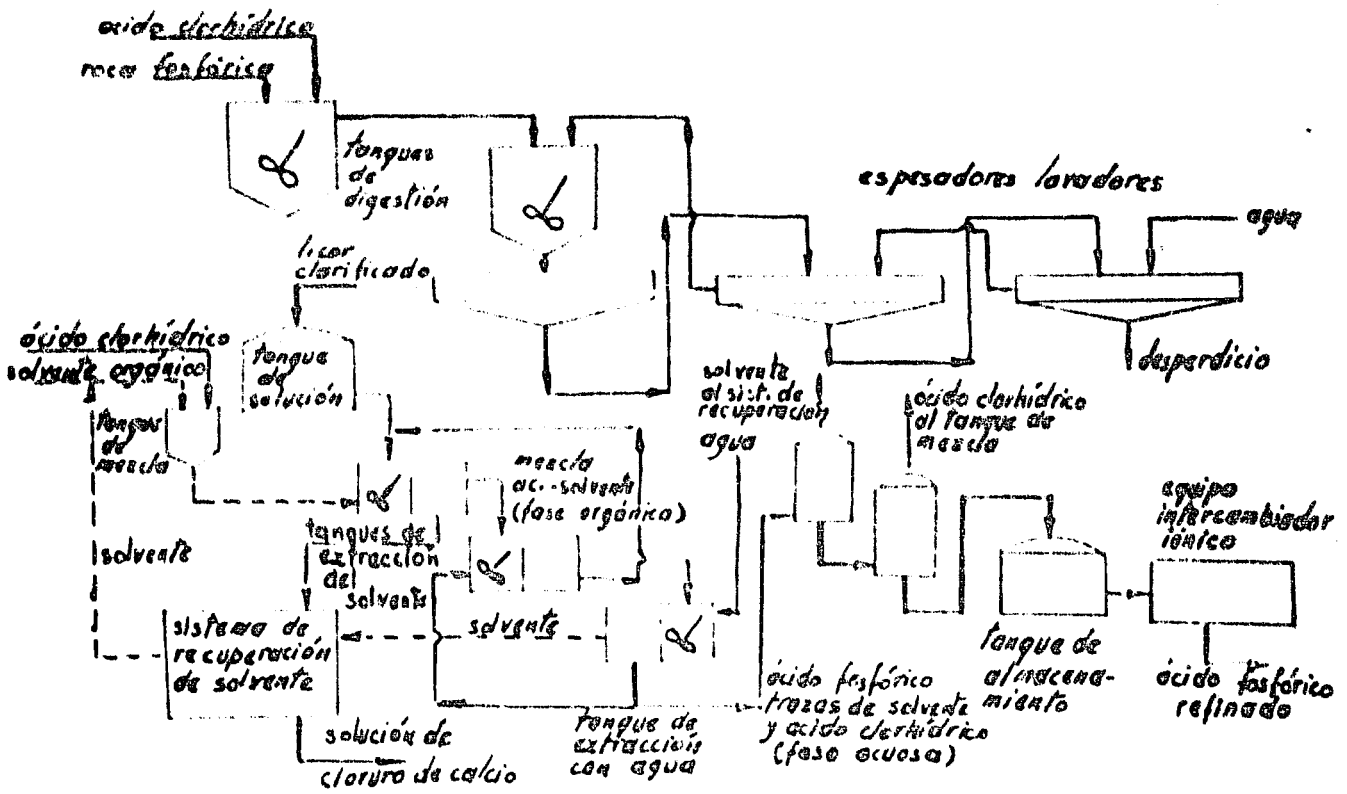 ácido clorhídrico
roca fosfórica
tanques
de
digestión
espesadores lavadores
agua
licor
clarificado
desperdicio
ácido clorhídrico
solvente orgánico
tanque
de
solución
tanque
de
mezcla
solvente
al sist. de
recuperación
agua
ácido clorhídrico
al tanque de
mezcla
mezcla
ac.-solvente
(fase orgánica)
equipo
intercambiador
iónico
tanques de
extracción
del
solvente
solvente
sistema de
recuperación
de solvente
solvente
tanque de
almacena-
miento
ácido fosfórico
refinado
ácido fosfórico
trazas de solvente
y acido clorhídrico
(fase acuosa)
tanque de
extracción
con agua
solución de
cloruro de calcio